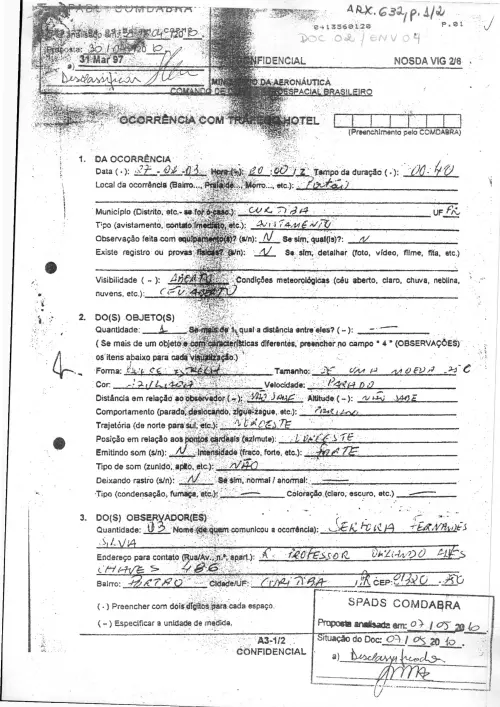 SPADS - COMDABRA
ARX. 632, p. 1/2
0413560120 P.01
DOC 02 / ENV 04
Proposta: 30/04/2010
31 Mar 97
CONFIDENCIAL NOSDA VIG 2/6
a) Desclassificar
MINISTÉRIO DA AERONÁUTICA
COMANDO DE AEROESPACIAL BRASILEIRO
OCORRÊNCIA COM TRÁFEGO HOTEL
(Preenchimento pelo COMDABRA)
1. DA OCORRÊNCIA
Data ( - ): 27-04-03 Hora (-): 20:00 / Z Tempo da duração ( - ): 00:40
Local da ocorrência (Bairro..., Praia de..., Morro..., etc.): Portão
Município (Distrito, etc.- se for o caso.): CURITIBA UF PR
Tipo (avistamento, contato imediato, etc.): AVISTAMENTO
Observação feita com equipamento(s)? (s/n): N Se sim, qual(is)?: N
Existe registro ou provas físicas? (s/n): N Se sim, detalhar (foto, vídeo, filme, fita, etc.)
Visibilidade ( ~ ): ABERTO Condições meteorológicas (céu aberto, claro, chuva, neblina,
nuvens, etc.): CÉU ABERTO
2. DO(S) OBJETO(S)
Quantidade: 1 Se mais de 1, qual a distância entre eles? ( ~ ):
( Se mais de um objeto e com características diferentes, preencher no campo " 4 " (OBSERVAÇÕES)
os itens abaixo para cada visualização.)
Forma: ESTRELA Tamanho: DE UMA MOEDA
Cor: Velocidade: PARADO
Distância em relação ao observador ( ~ ): NÃO SABE Altitude ( ~ ): NÃO SABE
Comportamento (parado, deslocando, zigue-zague, etc.): PARADO
Trajetória (de norte para sul, etc.): NORDESTE
Posição em relação aos pontos cardeais (azimute): NORDESTE
Emitindo som (s/n): N Intensidade (fraco, forte, etc.): FORTE
Tipo de som (zunido, apito, etc.): NÃO
Deixando rastro (s/n): N Se sim, normal / anormal:
Tipo (condensação, fumaça, etc.): Coloração (claro, escuro, etc.)
3. DO(S) OBSERVADOR(ES)
Quantidade: 03 Nome (de quem comunicou a ocorrência): FERNANDES
SILVA
Endereço para contato (Rua/Av., n.º, apart.): R. PROFESSOR ALVES
CHAVES 486
Bairro: PORTÃO Cidade/UF: CURITIBA PR CEP:
( - ) Preencher com dois dígitos para cada espaço.
( ~ ) Especificar a unidade de medida.
A3-1/2
CONFIDENCIAL
SPADS COMDABRA
Proposta analisada em: 07 / 05 2010
Situação do Doc: 07 / 05 2010.
a) Desclassificado